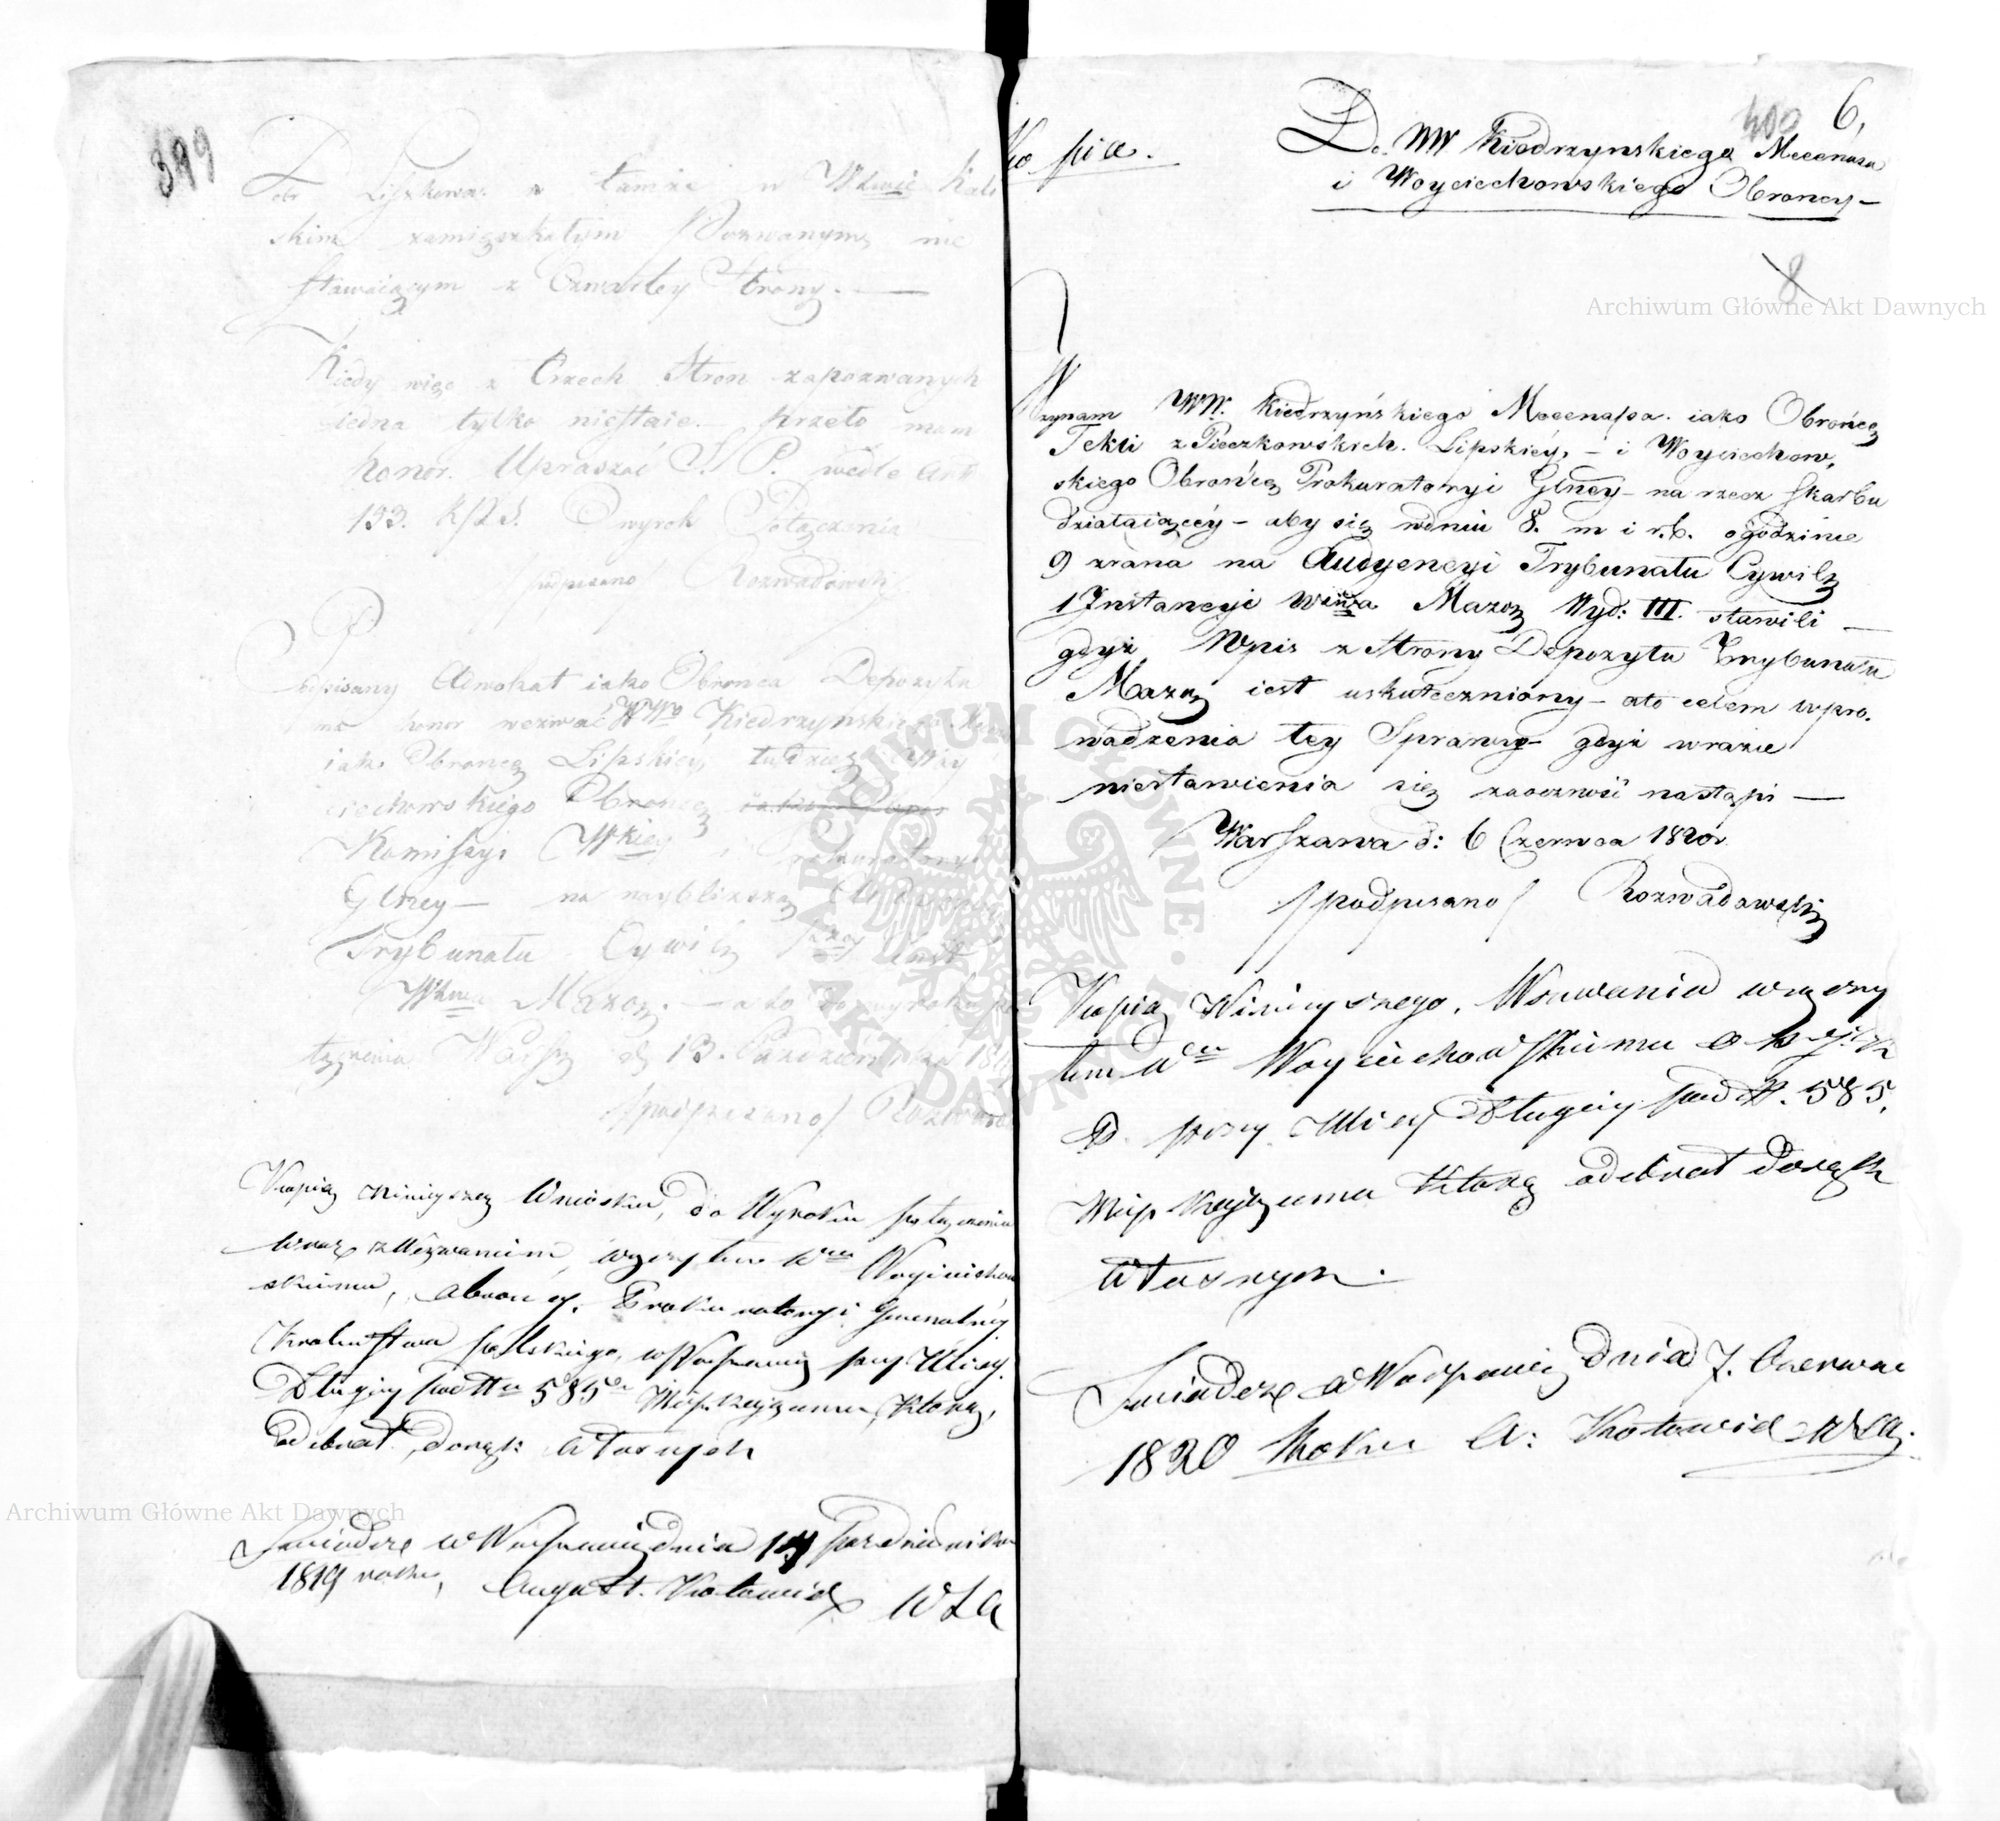 399
Dobr Lipskowa: a tamże w Wdzwie Kali
skim zamięszkałym Pozwanymę nie
stawaiącym z Czwartey Strony. —
Kiedy więc z Trzech Stron zapozwanych
iedna tylko niestaie. — przeto mam
honor. Upraszać S. P. wedle art
153. K.P.S. O wyrok Połączenia
/podpisano/ Rozwadowski
Podpisany Adwokat iako Obronca Depozytu
ma honor wezwać WWo Kiedrzynskiego
iako Obroncę Lipskiey tudzież Woy
ciechowskiego Obroncę
Kommissyi Wkiey i Prokuratoryi
Glney — na naybliższą Audyency
Trybunału Cywilę 1szey Inst
Wdzwa Mazoę. — a to do wyroku po
łączenia Warsz d. 13. Pazdziernika 181
/podpisano/ Rozwado
Kopią ninieyszey Wniosku, do Wyroku połączenia
wraz z Wezwaniem, wręczyłem Wmu Woyciechow
skiemu, obroncy, Prokuratoryi Generalney
Krolestwa Polskiego, w Warszawie przy Ulicy
Długiey pod Nr 585 Mieszkaiącemu, którą,
odebrał, do rąk własnych
Swiadczę w Warszawie dnia 14 Pazdziernika
1819 roku, August. Kotowicz WSA
Kopia.
400 6,
Do WW Kiedrzynskiego Mecenasa
i Woyciechowskiego Obroncy —
8
Wzywam WW. Kiedrzyńskiego Mecenassa. iako Obrońcę
Tekli z Pieczkowskich. Lipskiéy, — i Woyciechow,
skiego Obrońcę Prokuratoryi Glney — na rzecz Skarbu
działaiącéy — aby się w dniu 8. m i r.b. o godzinie
9 zrana na Audyencyi Trybunału Cywilę
1 Instancyi Wdzwa Mazoę Wyd: III. stawili —
gdyż Wpis z Strony Depozytu Trybunału
Mazoę iest uskuteczniony — ato celem wpro.
wadzenia tey Sprawy — gdyż wrazie
niestawienia się zaoczność nastąpi —
Warszawa d: 6 Czerwca 1820r.
/podpisano/ Rozwadowski
Kopią Ninieyszego, Wezwania wręczy
łem Wmu Woyciechowskiemu
przy Ulicy Długiey pod Nr. 585.
Mieszkaiącemu którą odebrał do rąk
własnych.
Swiadczę w Warszawie Dnia 7. Czerwca
1820 Roku A: Kotowicz WSA.
Archiwum Główne Akt Dawnych
Archiwum Główne Akt Dawnych
ARCHIWUM GŁÓWNE AKT DAWNYCH